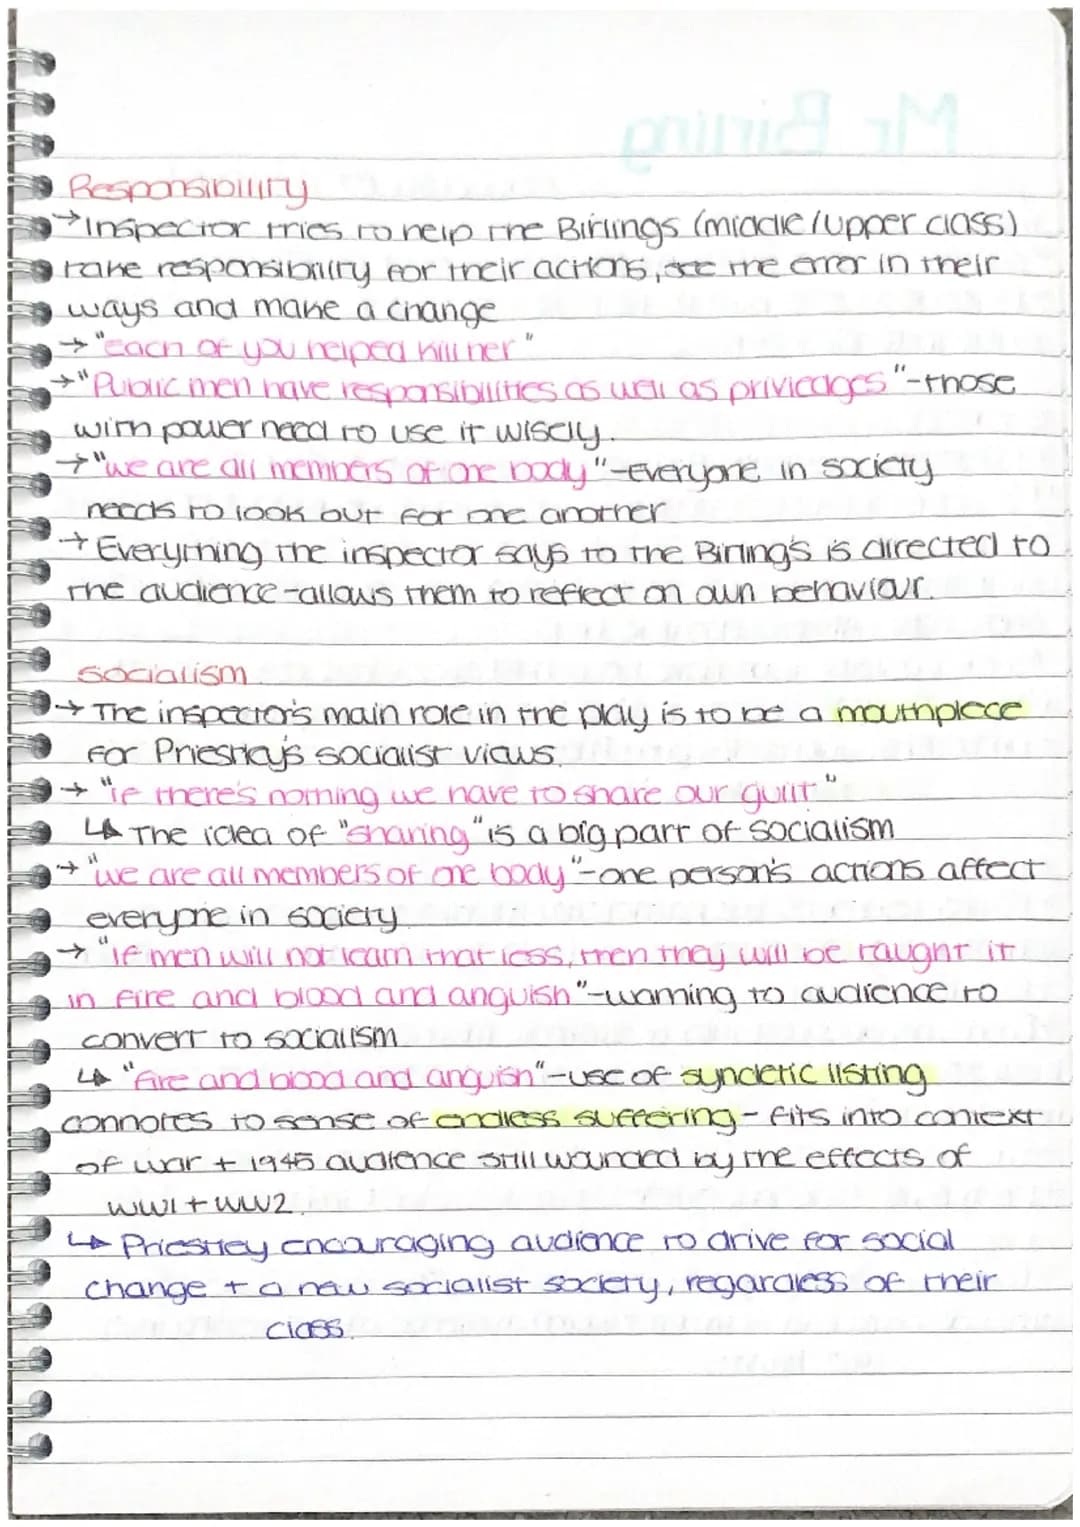 Mr Birling
Responsibility
→Inspector tries to help the Birlings (middle/upper class)
take responsibility for their actions, see the error in their
ways and make a change
→"each of you helped kill her"
→"Public men have responsibilities as well as priviedges"-those
with power need to use it wisely.
→"we are all members of one body"-everyone in society
needs to look out for one another
→Everything the inspector says to the Birling's is directed to
the audience-allows them to reflect on own behaviour.
socialism
→The inspector's main role in the play is to be a mouthpiece
for Priestley's socialist views.
→"if there's nothing we have to share our guilt"
↳The idea of "sharing" is a big part of socialism
→"we are all members of one body"-one person's actions affect
everyone in society
→"If men will not learn that less, then they will be taught it
in fire and blood and anguish"-warning to audience to
convert to socialism
↳"fire and blood and anguish"-use of syndetic listing
connotes to sense of endless suffering-fits into context
of war + 1945 audience still wounded by the effects of
WW1 + WW2.
↳Priestley encouraging audience to drive for social
change + a new socialist society, regardless of their
class.